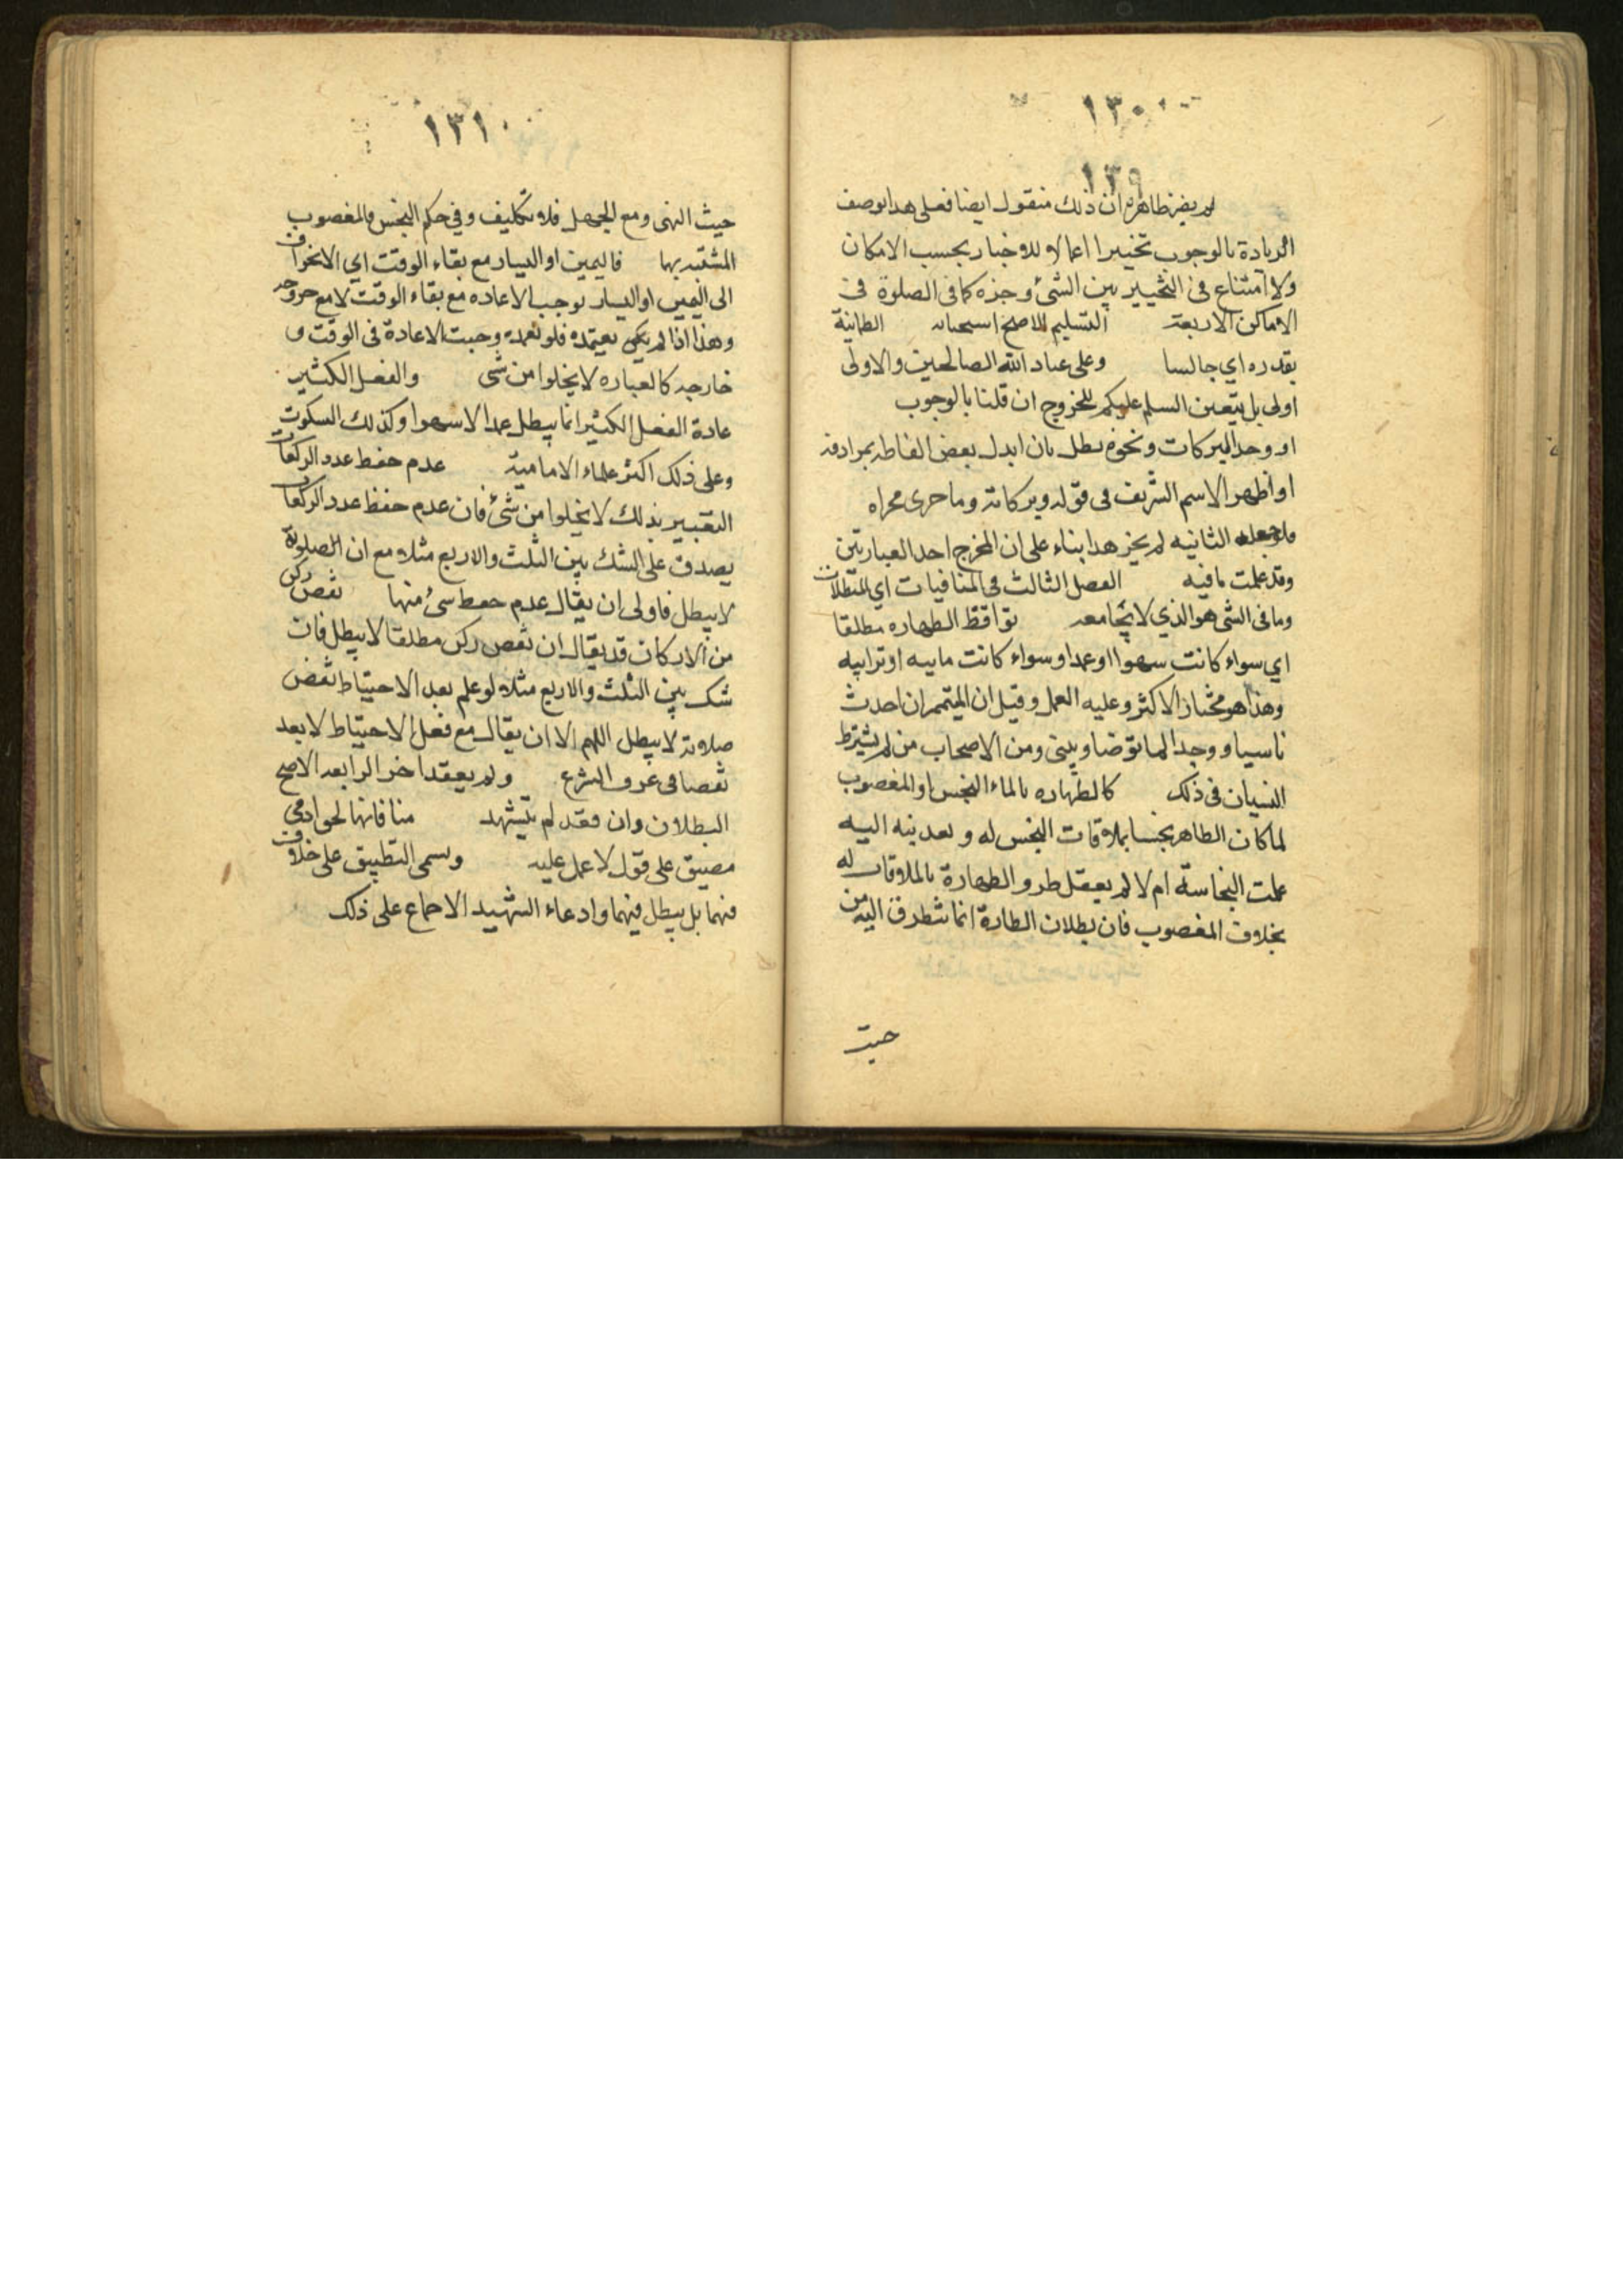 ١٣٠
١٣٩
لم يضر ظاهره ان ذلك منقول ايضا فعلى هذا يوصف
الزيادة بالوجوب تخييرا اعمالا للاخبار بحسب الامكان
ولا امتناع في التخيير بين الشئ وجزه كما في الصلوة في
الاماكن الاربعة التسليم للاصح استحبابه الطمانينة
بقدره اي جالسا وعلى عباد الله الصالحين والاولى
اولى بل يتعين السلم عليكم للخروج ان قلنا بالوجوب
او وحد البركات ونحوه بطل بان ابدل بعض الفاظه بمرادفه
او اظهر الاسم الشريف في قوله وبركاته وما جرى مجراه
الثانيه لم يجز هذا بناء على ان المخرج احد العبارتين
وقد علمت ما فيه الفصل الثالث في المنافيات اي المبطلات
ومنافى الشى هو الذي لا يجامعه نواقض الطهاره مطلقا
اي سواء كانت سهوا او عمدا وسواء كانت ماييه او ترابيه
وهذا هو مختار الاكثر وعليه العمل وقيل ان المتيمم ان احدث
ناسيا ووجد الما توضا ويبنى ومن الاصحاب من لم يشترط
النسيان في ذلك كالطهاره بالماء النجس او المغصوب
لما كان الطاهر نجسا بملاقات النجس له وتعديته اليه
علمت النجاسة ام لا لم يعقل طرو الطهارة بالملاقات له
بخلاف المغصوب فان بطلان الطارة انما تطرق اليه من
حيث
١٣١
حيث النهى ومع الجهل فلا تكليف وفي حكم النجس والمغصوب
المشتبه بها فاليمين او اليسار مع بقاء الوقت اي الانحراف
الى اليمين او اليسار يوجب الاعاده مع بقاء الوقت لا مع خروجه
وهذا اذا لم يكن يعتمده فلو تعمده وجبت الاعادة في الوقت و
خارجه كالعباره لا يخلوا من شى والفعل الكثير
عادة الفعل الكثير انما يبطل عمدا لا سهوا وكذلك السكوت
وعلى ذلك اكثر علماء الامامية عدم حفظ عدد الركعات
التعبير بذلك لا يخلوا من شئ فان عدم حفظ عدد الركعات
يصدق على الشك بين الثلث والاربع مثلا مع ان الصلوة
لا يبطل فاولى ان يقال عدم حفظ شئ منها نقص ركن
من الاركان قد يقال ان نقص ركن مطلقا لا يبطل فان
شك بين الثلث والاربع مثلا لو علم بعد الاحتياط نقص
صلاته لا يبطل اللهم الا ان يقال مع فعل الاحتياط لا يعد
نقصا في عرف الشرع ولم يعقد اخر الرابعه الاصح
البطلان وان قعد لم يتشهد منافاتها لحق ادمي
مضيق على قول لا عمل عليه ويسمى التطبيق على خلاف
فيهما بل يبطل فيهما وادعاء الشهيد الاجماع على ذلك